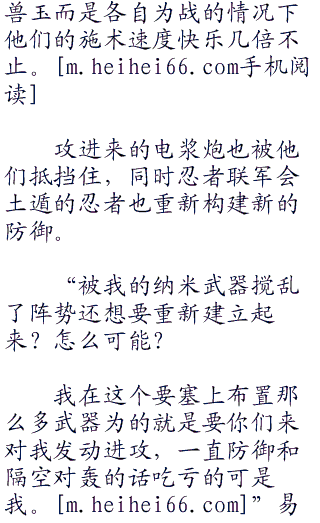 兽玉而是各自为战的情况下
他们的施术速度快乐几倍不
止。[m.heihei66.com手机阅
读]
攻进来的电浆炮也被他
们抵挡住，同时忍者联军会
土遁的忍者也重新构建新的
防御。
“被我的纳米武器搅乱
了阵势还想要重新建立起
来？怎么可能？
我在这个要塞上布置那
么多武器为的就是要你们来
对我发动进攻，一直防御和
隔空对轰的话吃亏的可是
我。[m.heihei66.com]”易